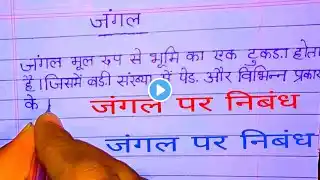 जंगल
जंगल मूल रूप से भूमि का एक टुकड़ा होता
है। जिसमें बड़ी संख्या में पेड़. और विभिन्न प्रकार
के जंगल पर निबंध
जंगल पर निबंध